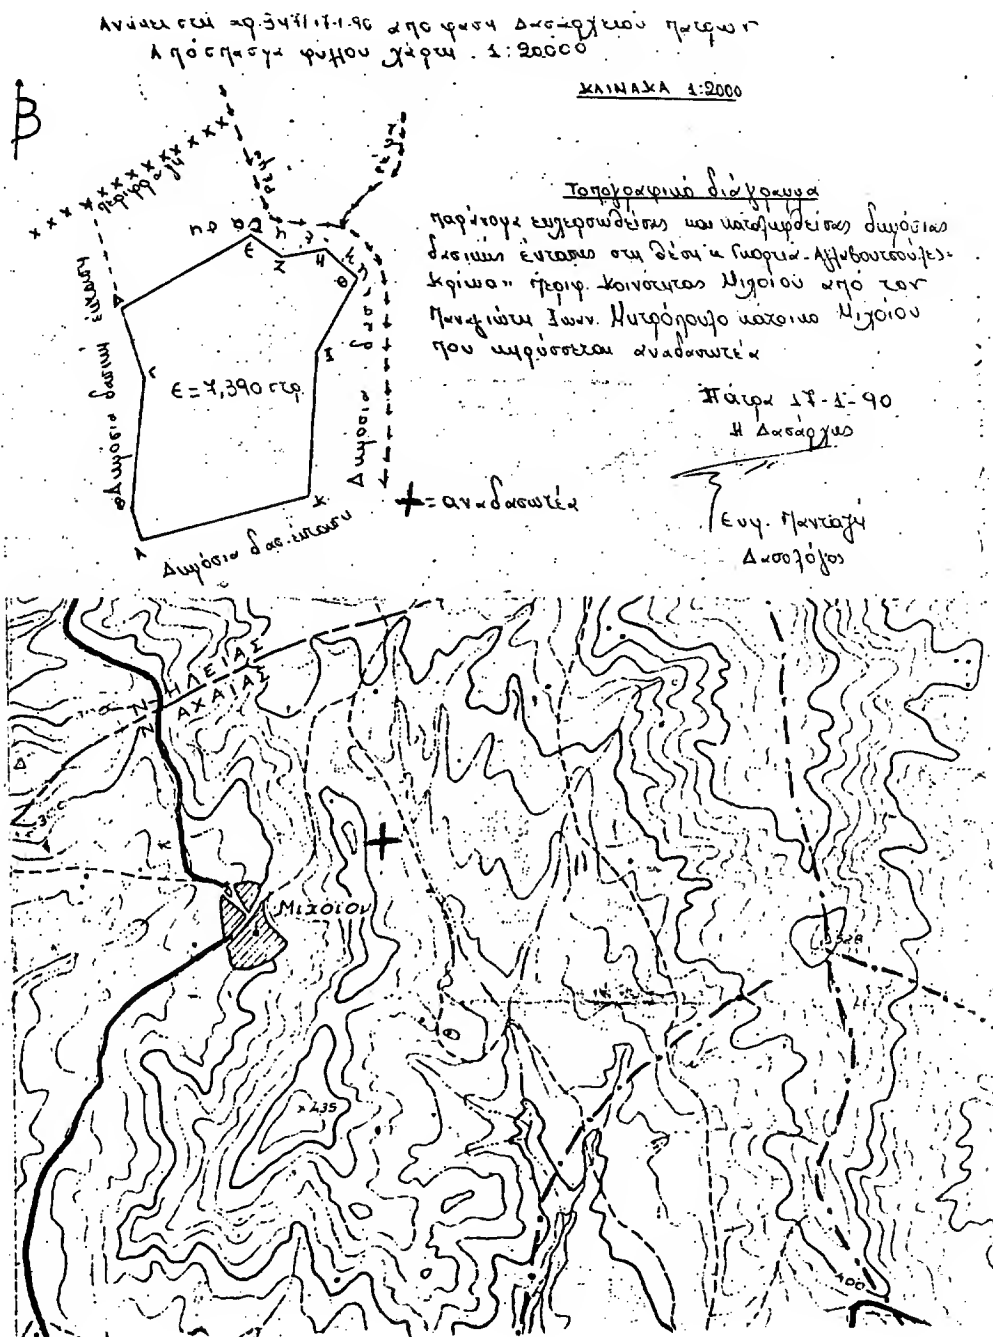 Ανήκει στη αρ. 347/17-1-90 απόφαση Δασαρχείου Πατρών
Απόσπασμα φύλλου χάρτη. 1:20000
ΚΛΙΜΑΚΑ 1:2000
Β
περίφραξη
ρέμα
ρέμα
Τοπογραφικό διάγραμμα
παράνομα εκχερσωθείσας και καταληφθείσας δημόσιας
δασικής έκτασης στη θέση
περιφ. Κοινότητας Μιχοίου από τον
Παναγιώτη Ιωαν. Μητρόπουλο κάτοικο Μιχοίου
που κηρύσσεται αναδασωτέα
Πάτρα 17-1-90
Η Δασάρχης
Ευγ. Πανταζή
Δασολόγος
Δημόσια δασική έκταση
Ε = 7,390 στρ.
Δημόσια
Δημόσια δασ. έκταση
+ = αναδασωτέα
Α
Β
Γ
Δ
Ε
Ζ
Η
Θ
Ι
Κ
Ν ΗΛΕΙΑΣ
Ν ΑΧΑΪΑΣ
Μιχοιον
328
×435
400